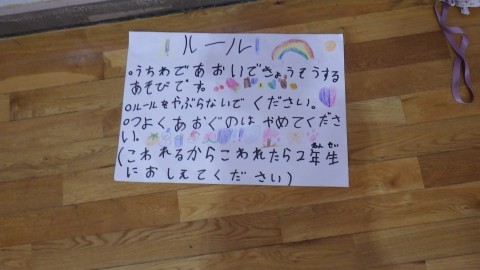 ルール
○うちわであおいできょうそうする
あそびです。
○ルールをやぶらないでください。
○つよくあおぐのはやめてくださ
い。
(こわれるからこわれたら2年生
ねんせい
におしえてください)